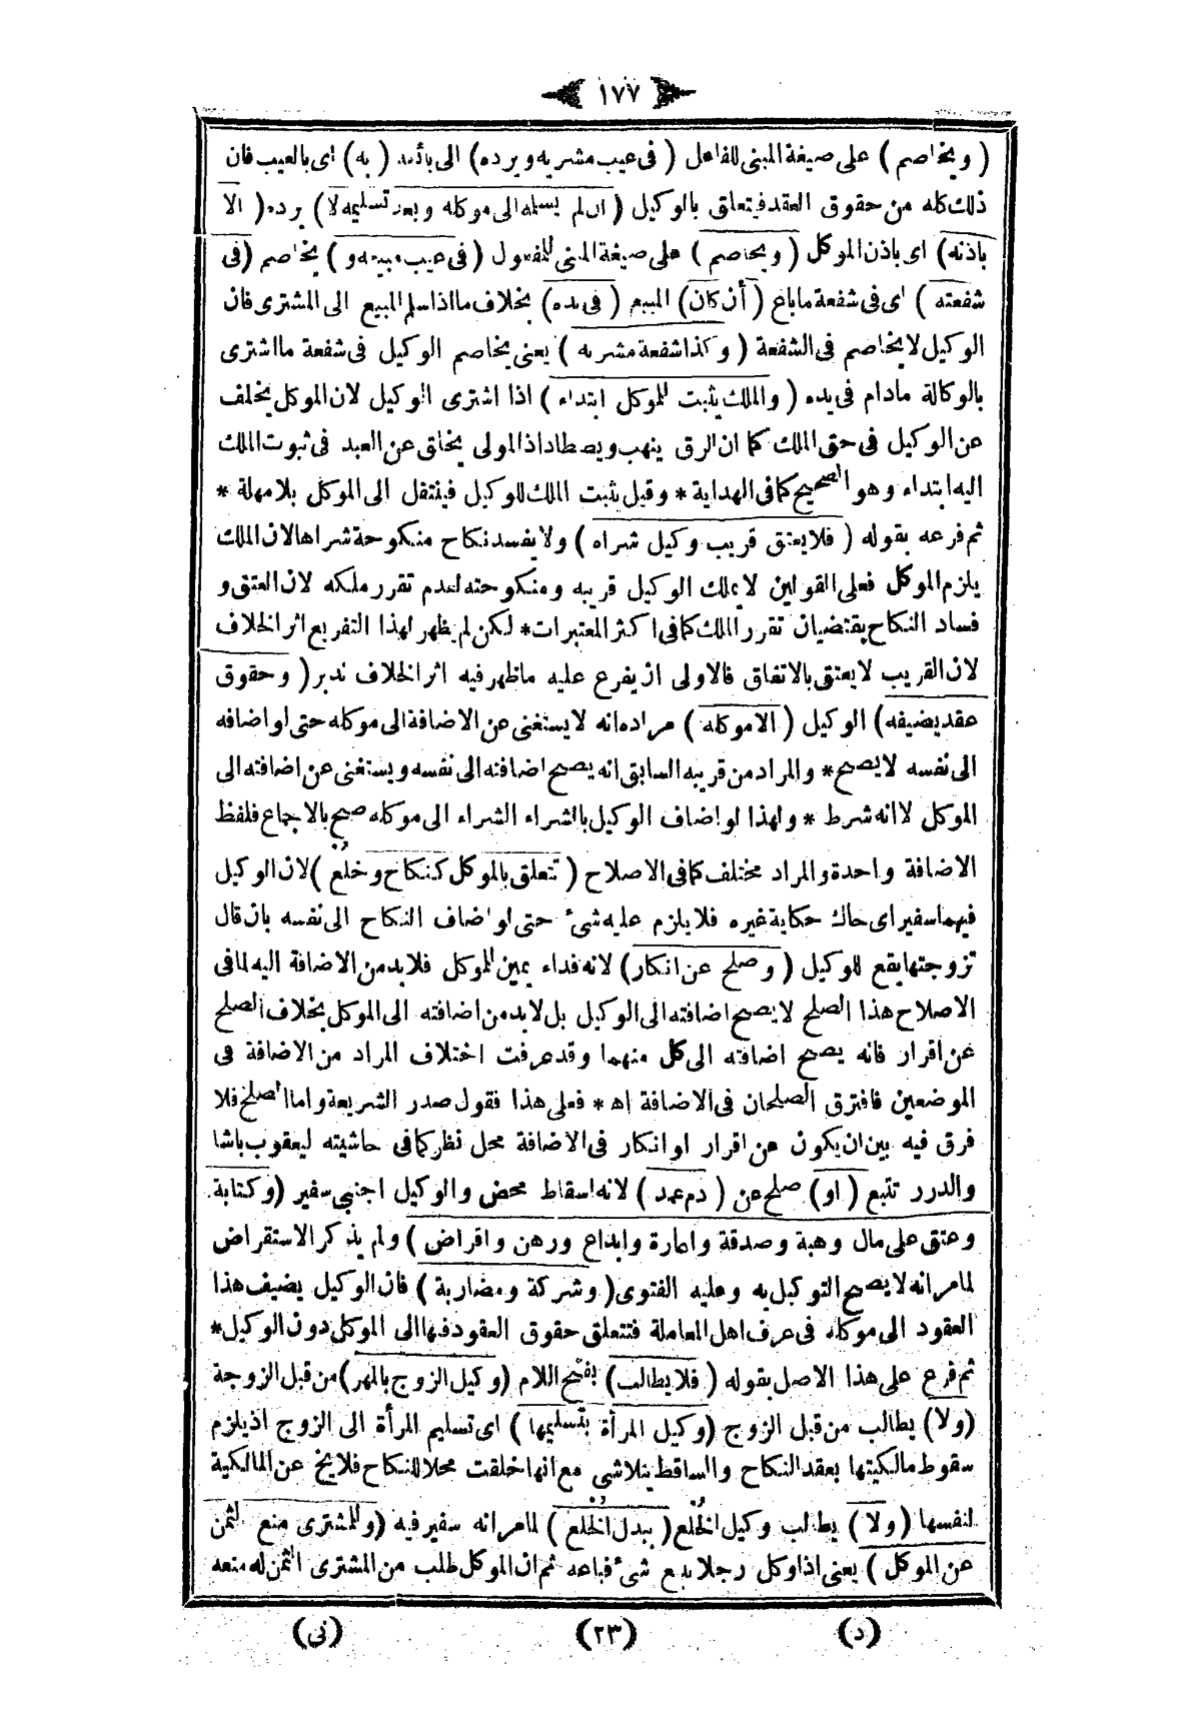 ١٧٧
( ويخاصم ) على صيغة المبنى للفاعل ( فى عيب مشريه ويرده ) الى بائعه ( به ) اى بالعيب فان
ذلك كله من حقوق العقد فيتعلق بالوكيل ( ان لم يسلمه الى موكله وبعد تسليمه لا ) يرده ( الا
باذنه ) اى باذن الموكل ( ويخاصم ) على صيغة المبنى للمفعول ( فى عيب مبيعه و ) يخاصم ( فى
شفعته ) اى فى شفعة ما باع ( أن كان ) المبيع ( فى يده ) بخلاف ما اذا سلم المبيع الى المشترى فان
الوكيل لا يخاصم فى الشفعة ( وكذا شفعة مشريه ) يعنى يخاصم الوكيل فى شفعة ما اشترى
بالوكالة مادام فى يده ( والملك يثبت للموكل ابتداء ) اذا اشترى الوكيل لان الموكل يخلف
عن الوكيل فى حق الملك كما ان الرق ينهب ويصطاد اذ المولى يخلق عن العبد فى ثبوت الملك
اليه ابتداء وهو الصحيح كما فى الهداية * وقيل يثبت الملك للوكيل فينتقل الى الموكل بلا مهلة *
ثم فرعه بقوله ( فلا يعتق قريب وكيل شراه ) ولا يفسد نكاح منكوحة شراها لان الملك
يلزم الموكل فعلى القولين لا يملك الوكيل قريبه ومنكوحته لعدم تقرر ملكه لان العتق و
فساد النكاح يقتضيان تقرر الملك كما فى اكثر المعتبرات * لكن لم يظهر لهذا التفريع اثر الخلاف
لان القريب لا يعتق بالاتفاق فالاولى ان يفرع عليه ما ظهر فيه اثر الخلاف تدبر ( وحقوق
عقد يضيفه ) الوكيل ( الا موكله ) مراده انه لا يستغنى عن الاضافة الى موكله حتى لو اضافه
الى نفسه لا يصح * والمراد من قريبه السابق انه يصح اضافته الى نفسه ويستغنى عن اضافته الى
الموكل لا انه شرط * ولهذا لو اضاف الوكيل بالشراء الشراء الى موكله صح بالاجماع فلفظ
الاضافة واحدة والمراد مختلف كما فى الاصلاح ( تتعلق بالموكل كنكاح وخلع ) لان الوكيل
فيهما سفير اى حاك حكاية غيره فلا يلزم عليه شىء حتى لو اضاف النكاح الى نفسه بان قال
تزوجتها يقع للوكيل ( وصلح عن انكار ) لانه فداء يمين للموكل فلا بد من الاضافة اليه لما فى
الاصلاح هذا الصلح لا يصح اضافته الى الوكيل بل لا بد من اضافته الى الموكل بخلاف الصلح
عن اقرار فانه يصح اضافته الى كل منهما وقد عرفت اختلاف المراد من الاضافة فى
الموضعين فافترق الصلحان فى الاضافة اه * فعلى هذا فقول صدر الشريعة واما الصلح فلا
فرق فيه بين ان يكون عن اقرار او انكار فى الاضافة محل نظر كما فى حاشيته ليعقوب باشا
والدرر تتبع ( او ) صلح عن ( دم عمد ) لانه اسقاط محض والوكيل اجنبى سفير ( وكتابة
وعتق على مال وهبة وصدقة واعارة وايداع ورهن واقراض ) ولم يذكر الاستقراض
لما مر انه لا يصح التوكيل به وعليه الفتوى ( وشركة ومضاربة ) فان الوكيل يضيف هذا
العقود الى موكله فى عرف اهل المعاملة فتتعلق حقوق العقود فيها الى الموكل دون الوكيل *
ثم فرع على هذا الاصل بقوله ( فلا يطالب ) بفتح اللام ( وكيل الزوج بالمهر ) من قبل الزوجة
( ولا ) يطالب من قبل الزوج ( وكيل المرأة بتسليمها ) اى تسليم المرأة الى الزوج اذ يلزم
سقوط مالكيتها بعقد النكاح والساقط يتلاشى مع انها خلقت محلا للنكاح فلا يخ عن المالكية
لنفسها ( ولا ) يطالب وكيل الخلع ( ببدل الخلع ) لما مر انه سفير فيه ( وللمشترى منع الثمن
عن الموكل ) يعنى اذا وكل رجلا ببيع شىء فباعه ثم ان الموكل طلب من المشترى الثمن له منعه
( د ) ( ٢٣ ) ( نى )